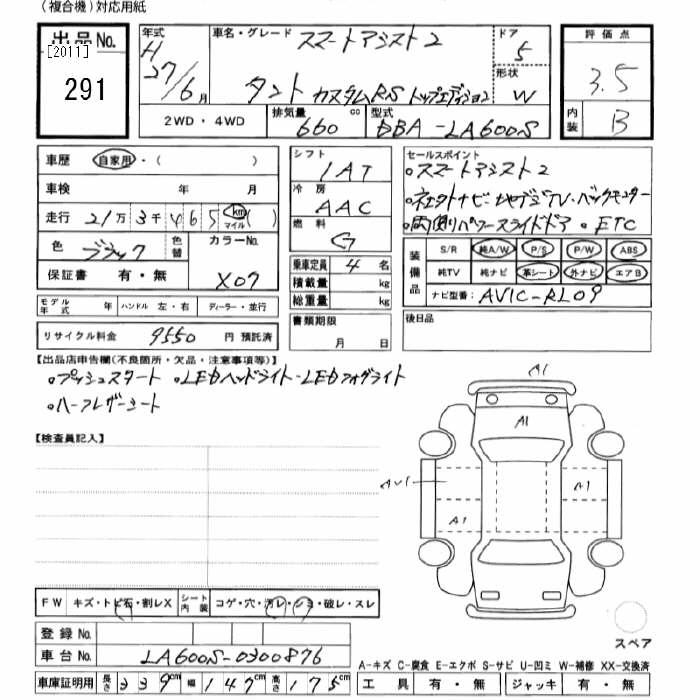 (複合機)対応用紙
出品No. [2011] 291
年式 H 27/6月
車名・グレード スマートアシスト2
タント カスタムRS トップエディション
ドア 5
形状 W
評価点 3.5
内装 B
2WD・4WD
排気量 660 cc
型式 DBA-LA600S
車歴 自家用・( )
車検 年 月
走行 21万 3千 465 km マイル ( )
色 ブラック 色替
カラーNo. X07
保証書 有・無
モデル年式 年 ハンドル 左・右 ディーラー・並行
リサイクル料金 9550 円 預託済
シフト IAT
冷房 AAC
燃料 G
乗車定員 4 名
積載量 kg
総重量 kg
書類期限
月 日
セールスポイント
。スマートアシスト2
。ネェクトナビ・地デジTV・バックモニター
。両側パワースライドドア 。ETC
装備品 S/R 純A/W P/S P/W ABS
純TV 純ナビ 革シート 外ナビ エアB
ナビ型番: AVIC-RL09
後日品
【出品店申告欄(不良箇所・欠品・注意事項等)】
。プッシュスタート 。LEDヘッドライト・LEDフォグライト
。ハーフレザーシート
【検査員記入】
A1
A1
AV1
A1
A1
スペア
FW キズ・トビ石・割レX
シート内装 コゲ・穴・汚レ・シミ・破レ・スレ
登録No.
車台No. LA600S-0300876
車庫証明用 長さ 339cm 幅 147cm 高さ 175cm
A-キズ C-腐食 E-エクボ S-サビ U-凹ミ W-補修 XX-交換済
工具 有・無 ジャッキ 有・無